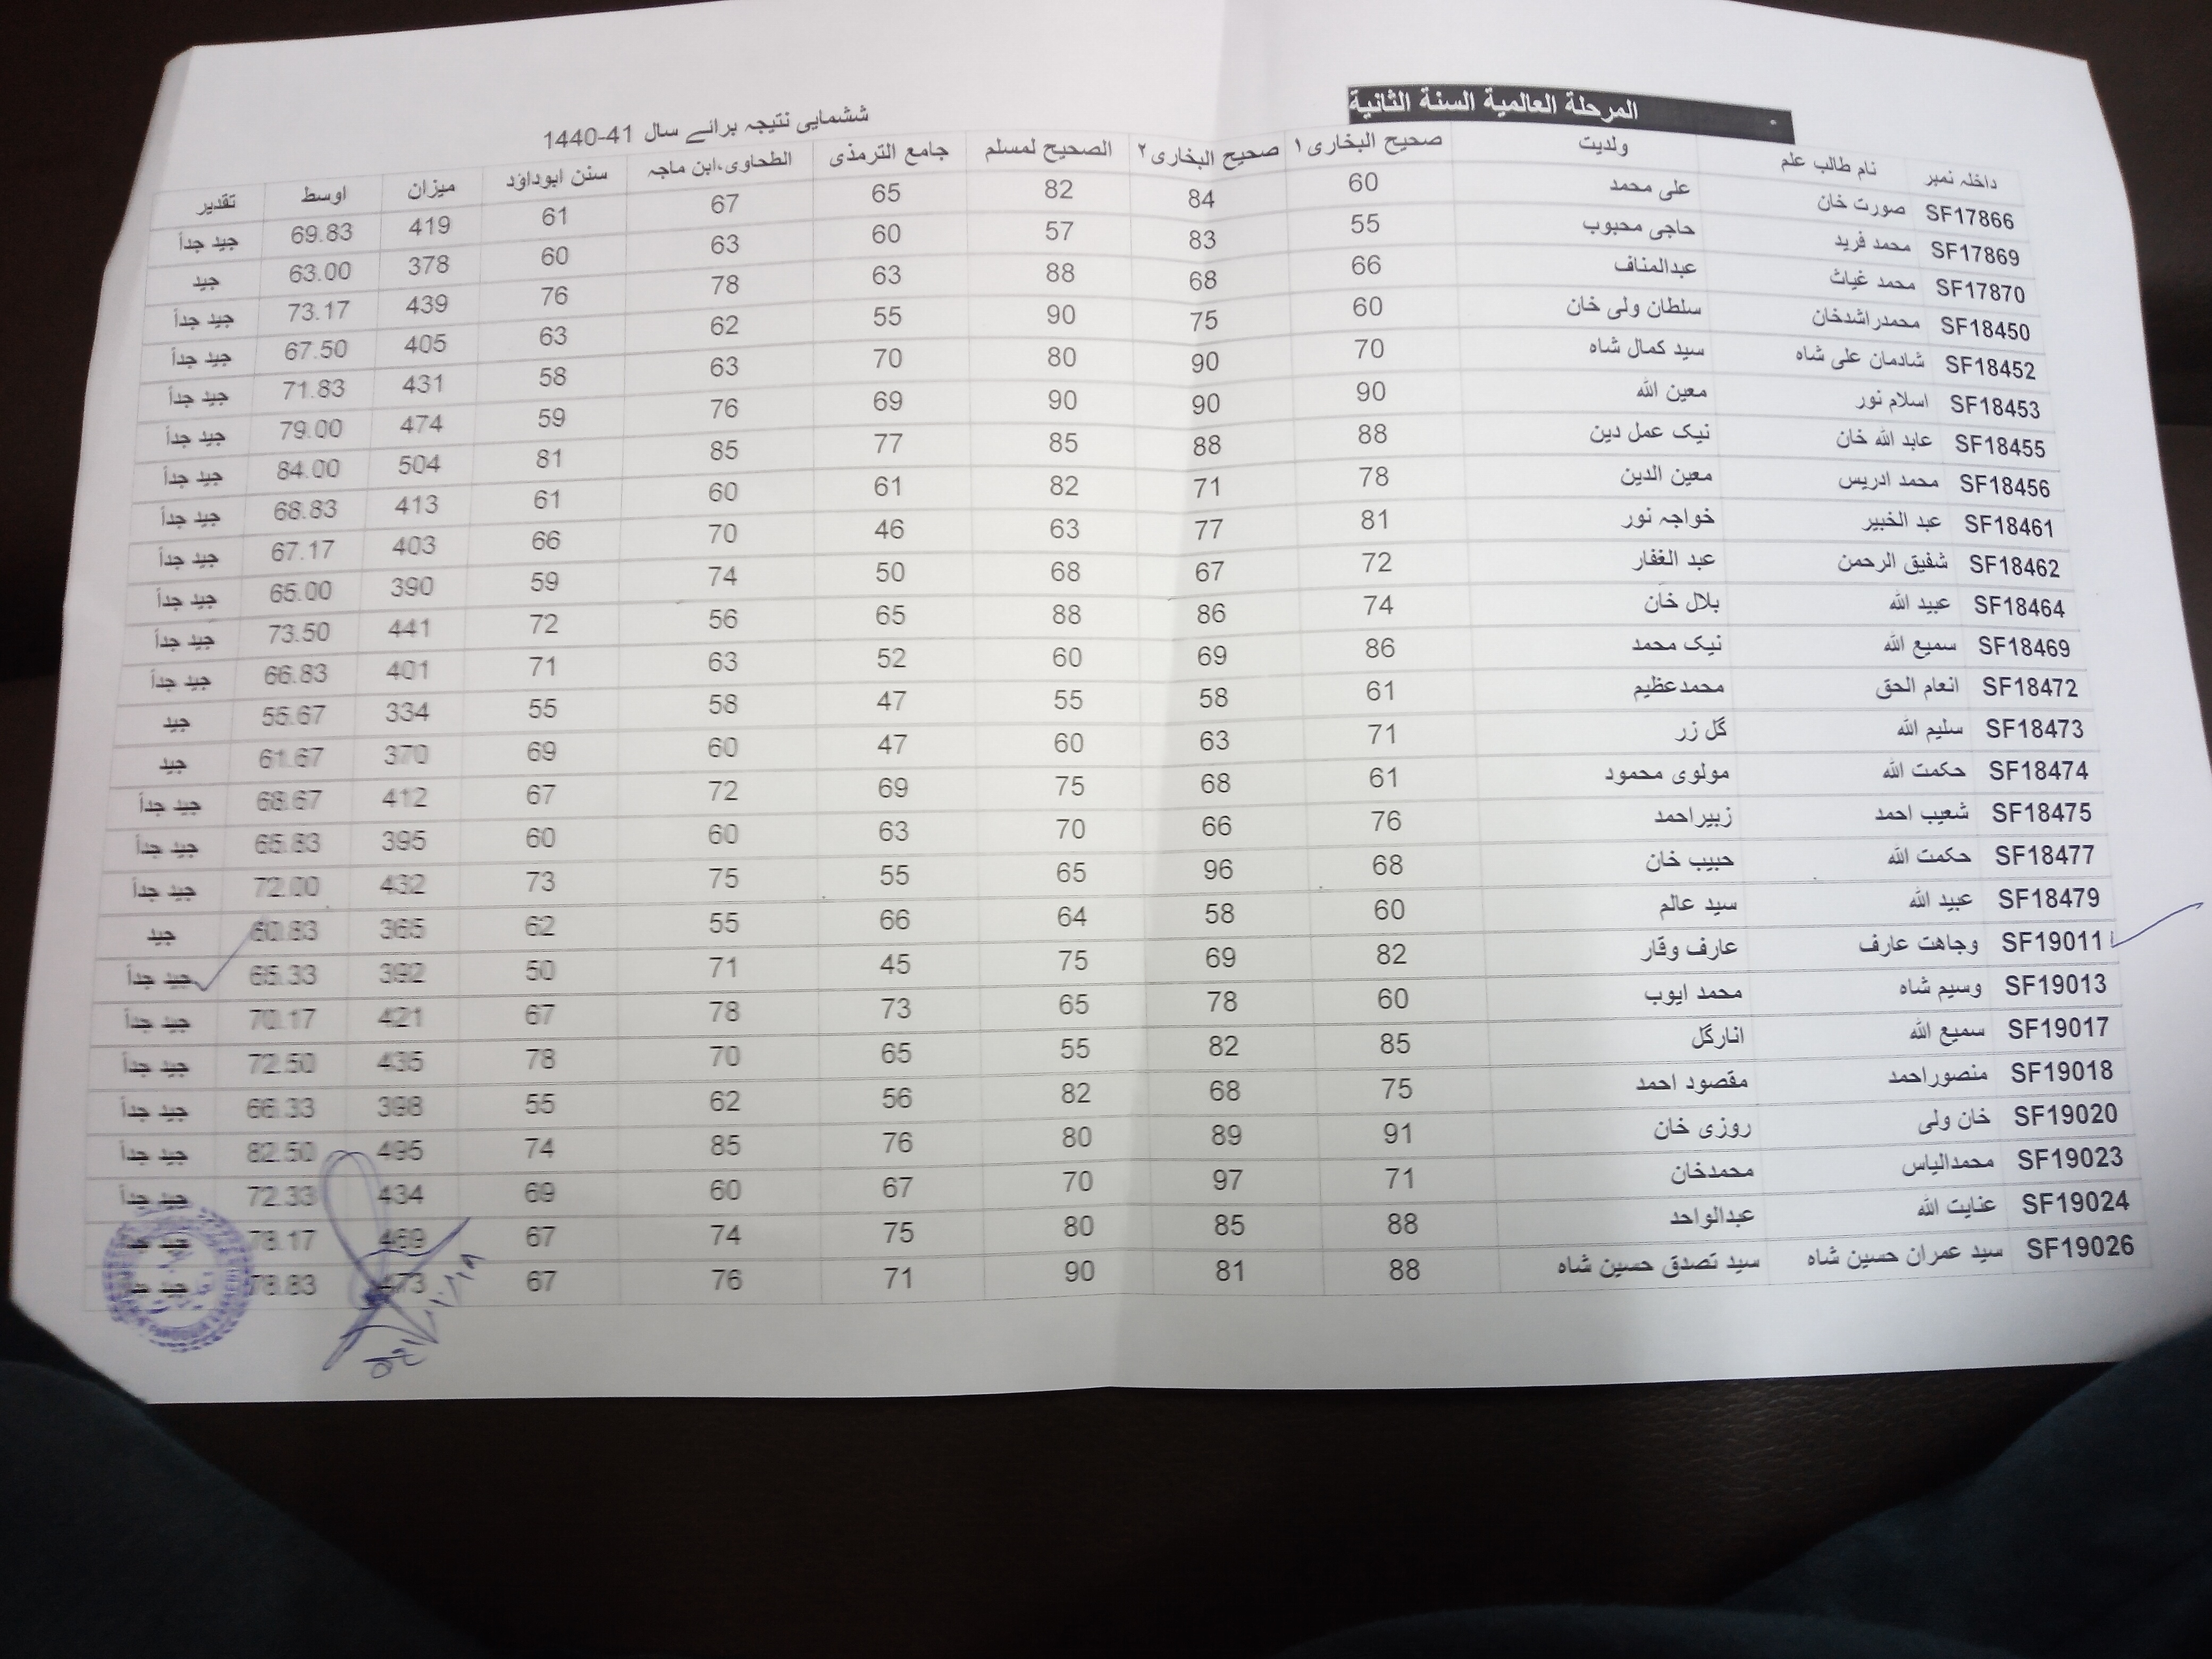 المرحلة العالمية السنة الثانية
ششماہی نتیجہ برائے سال 41-1440
داخلہ نمبر نام طالب علم ولدیت صحیح البخاری۱ صحیح البخاری۲ الصحیح لمسلم جامع الترمذی الطحاوی،ابن ماجہ سنن ابوداؤد میزان اوسط تقدیر
SF17866 صورت خان علی محمد 60 84 82 65 67 61 419 69.83 جید جداً
SF17869 محمد فرید حاجی محبوب 55 83 57 60 63 60 378 63.00 جید
SF17870 محمد غیاث عبدالمناف 66 68 88 63 78 76 439 73.17 جید جداً
SF18450 محمدراشدخان سلطان ولی خان 60 75 90 55 62 63 405 67.50 جید جداً
SF18452 شادمان علی شاہ سید کمال شاہ 70 90 80 70 63 58 431 71.83 جید جداً
SF18453 اسلام نور معین اللہ 90 90 90 69 76 59 474 79.00 جید جداً
SF18455 عابد اللہ خان نیک عمل دین 88 88 85 77 85 81 504 84.00 جید جداً
SF18456 محمد ادریس معین الدین 78 71 82 61 60 61 413 68.83 جید جداً
SF18461 عبد الخبیر خواجہ نور 81 77 63 46 70 66 403 67.17 جید جداً
SF18462 شفیق الرحمن عبد الغفار 72 67 68 50 74 59 390 65.00 جید جداً
SF18464 عبید اللہ بلال خان 74 86 88 65 56 72 441 73.50 جید جداً
SF18469 سمیع اللہ نیک محمد 86 69 60 52 63 71 401 66.83 جید جداً
SF18472 انعام الحق محمدعظیم 61 58 55 47 58 55 334 55.67 جید
SF18473 سلیم اللہ گل زر 71 63 60 47 60 69 370 61.67 جید
SF18474 حکمت اللہ مولوی محمود 61 68 75 69 72 67 412 68.67 جید جداً
SF18475 شعیب احمد زبیراحمد 76 66 70 63 60 60 395 65.83 جید جداً
SF18477 حکمت اللہ حبیب خان 68 96 65 55 75 73 432 72.00 جید جداً
SF18479 عبید اللہ سید عالم 60 58 64 66 55 62 365 60.83 جید
SF19011 وجاهت عارف عارف وقار 82 69 75 45 71 50 392 65.33 جید جداً
SF19013 وسیم شاہ محمد ایوب 60 78 65 73 78 67 421 70.17 جید جداً
SF19017 سمیع اللہ انارگل 85 82 55 65 70 78 435 72.50 جید جداً
SF19018 منصوراحمد مقصود احمد 75 68 82 56 62 55 398 66.33 جید جداً
SF19020 خان ولی روزی خان 91 89 80 76 85 74 495 82.50 جید جداً
SF19023 محمدالیاس محمدخان 71 97 70 67 60 69 434 72.33 جید جداً
SF19024 عنایت اللہ عبدالواحد 88 85 80 75 74 67 469 78.17 جید جداً
SF19026 سید عمران حسین شاہ سید تصدق حسین شاہ 88 81 90 71 76 67 473 78.83 جید جداً